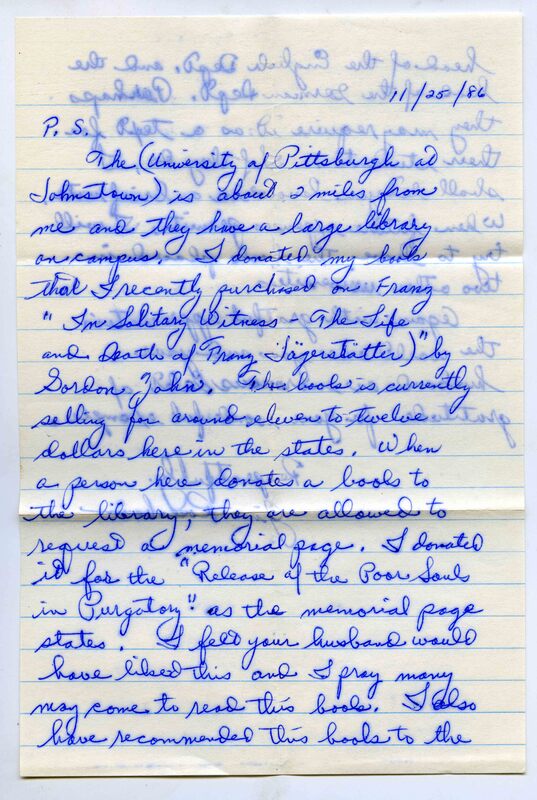 11/25/86
P. S.
The (University of Pittsburgh at
Johnstown) is about 2 miles from
me and they have a large library
on campus. I donated my book
that I recently purchased on Franz
" In Solitary Witness The Life
and Death of Franz Jägerstätter)" by
Gordon Zahn. This books is currently
selling for around eleven to twelve
dollars here in the states. When
a person here donates a books to
the library, they are allowed to
request a memorial page. I donated
it for the "Release of the Poor Souls
in Purgatory" as the memorial page
states. I felt your husband would
have liked this and I pray many
may come to read this books. I also
have recommended this books to the